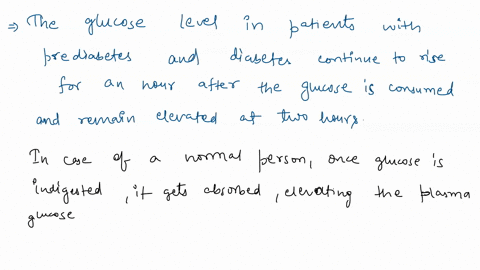 ⇒ The glucose level in patients with
prediabetes and diabetes continue to rise
for an hour after the glucose is consumed
and remain elevated at two hours.
In case of a normal person, once glucose is
indigested, it gets absorbed, elevating the plasma
glucose